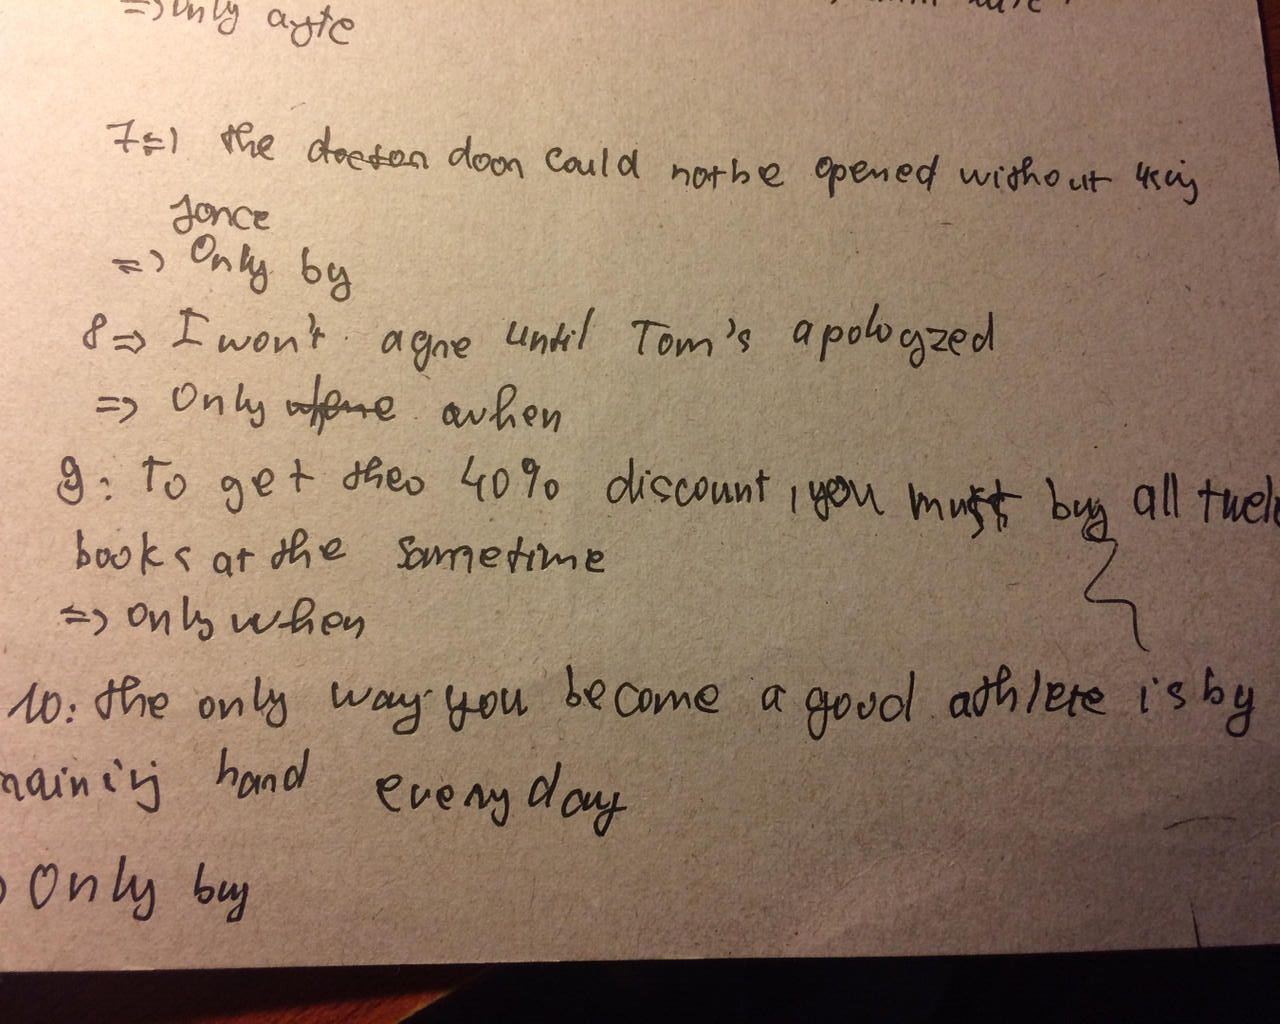 => Only
7=> the door could not be opened without using
force
=> Only by
8=> I won't agree until Tom's apologzed
=> Only when
9: To get the 40% discount, you must buy all
books at the sametime
=> only when
10: the only way you become a good athlete is by
hard every day
Only by